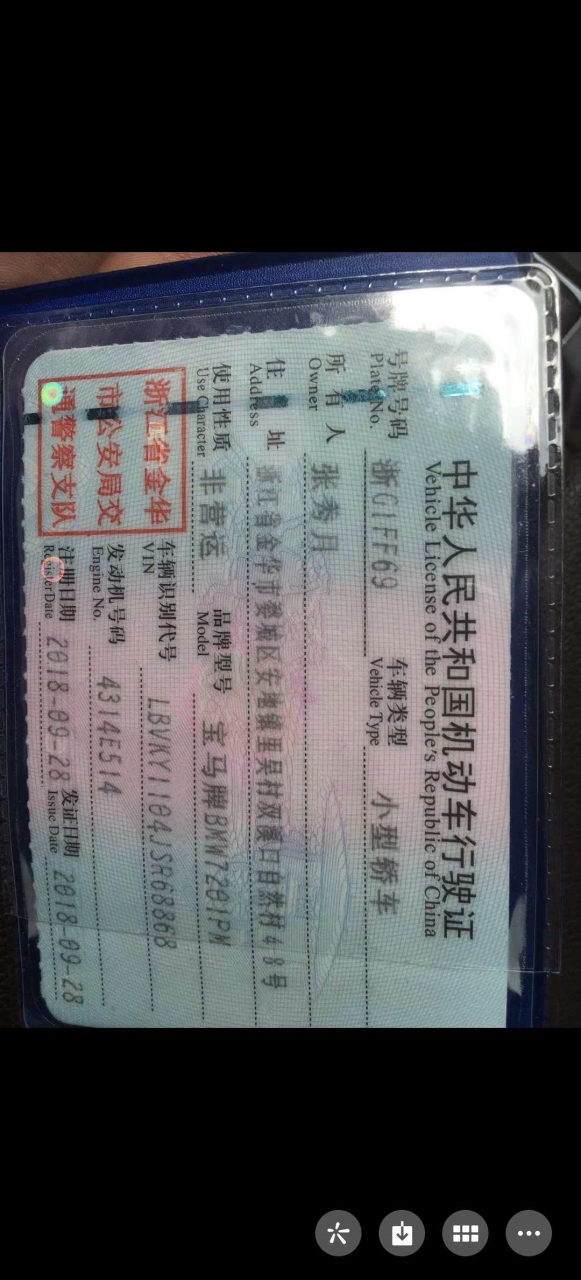 中华人民共和国机动车行驶证
Vehicle License of the People's Republic of China
号牌号码 浙G1FF69 车辆类型 小型轿车
Plate No. Vehicle Type
所有人 张秀月
Owner
住址 浙江省金华市婺城区安地镇里吴村双溪口自然村48号
Address
使用性质 非营运 品牌型号 宝马牌BMW7201PM
Use Character Model
浙江省金华
市公安局交
通警察支队
车辆识别代号 LBVKY1104JSR68868
VIN
发动机号码 4314E514
Engine No.
注册日期 2018-09-28 发证日期 2018-09-28
Register Date Issue Date